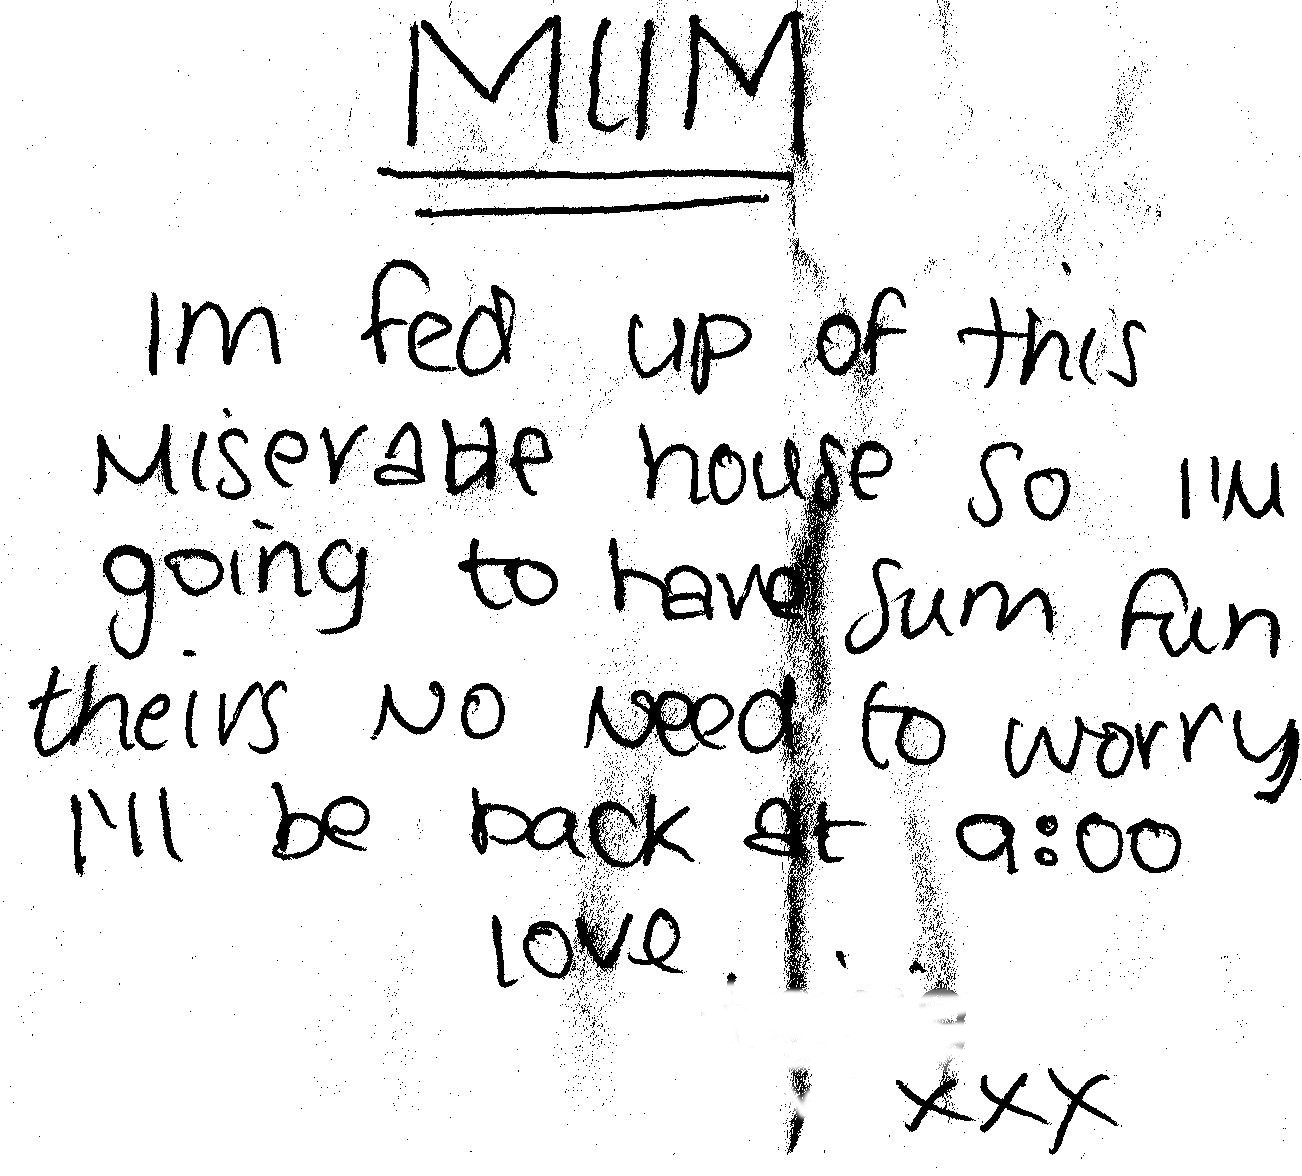 MUM
Im fed up of this
Miserable house so I'M
going to have sum fun
theirs No Need to worry
I'll be back at 9:00
love...
xxx